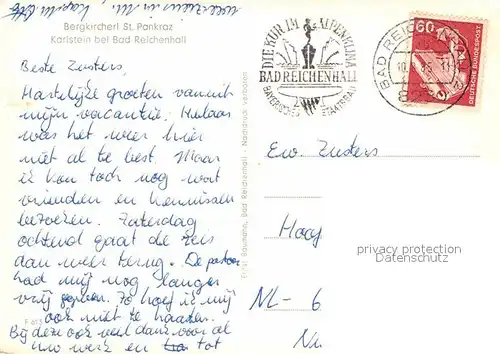 Bergkircherl St. Pankraz
Karlstein bei Bad Reichenhall
Beste Zusters,
Hartelijke groeten vanuit
mijn vacantie. Helaas
was het weer hier
niet al te best. Maar
ik kon toch nog wat
vrienden en kennissen
bezoeken. Zaterdag
ochtend gaat de reis
dan weer terug. De pastoor
had mij nog langer
vrij gegeven. Zo hoef ik mij
ook niet te haasten.
Bij deze ook veel dank voor al
uw werk en tot
Ernst Baumann, Bad Reichenhall - Nachdruck verboten
DIE KUR IM ALPENKLIMA
BAD REICHENHALL
BAYERISCHES STAATSBAD
BAD REICHENHALL
60
DEUTSCHE BUNDESPOST
Ew. Zusters
Hooy
privacy protection
Datenschutz
NL - 6